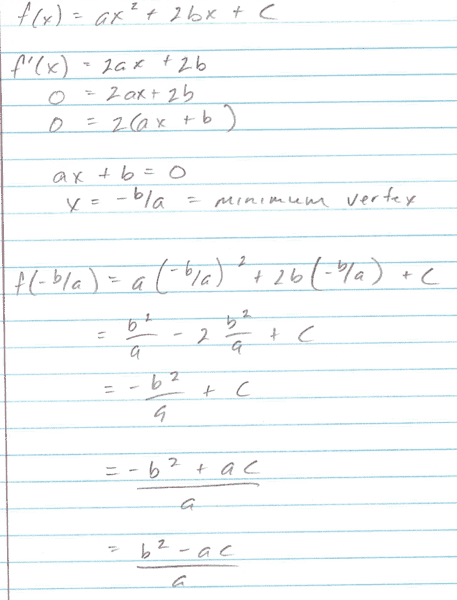 f(x) = ax² + 2bx + c
f'(x) = 2ax + 2b
0 = 2ax + 2b
0 = 2(ax + b)
ax + b = 0
x = -b/a = minimum vertex
f(-b/a) = a(-b/a)² + 2b(-b/a) + c
= b²/a - 2 b²/a + c
= -b²/a + c
= (-b² + ac)/a
= (b² - ac)/a